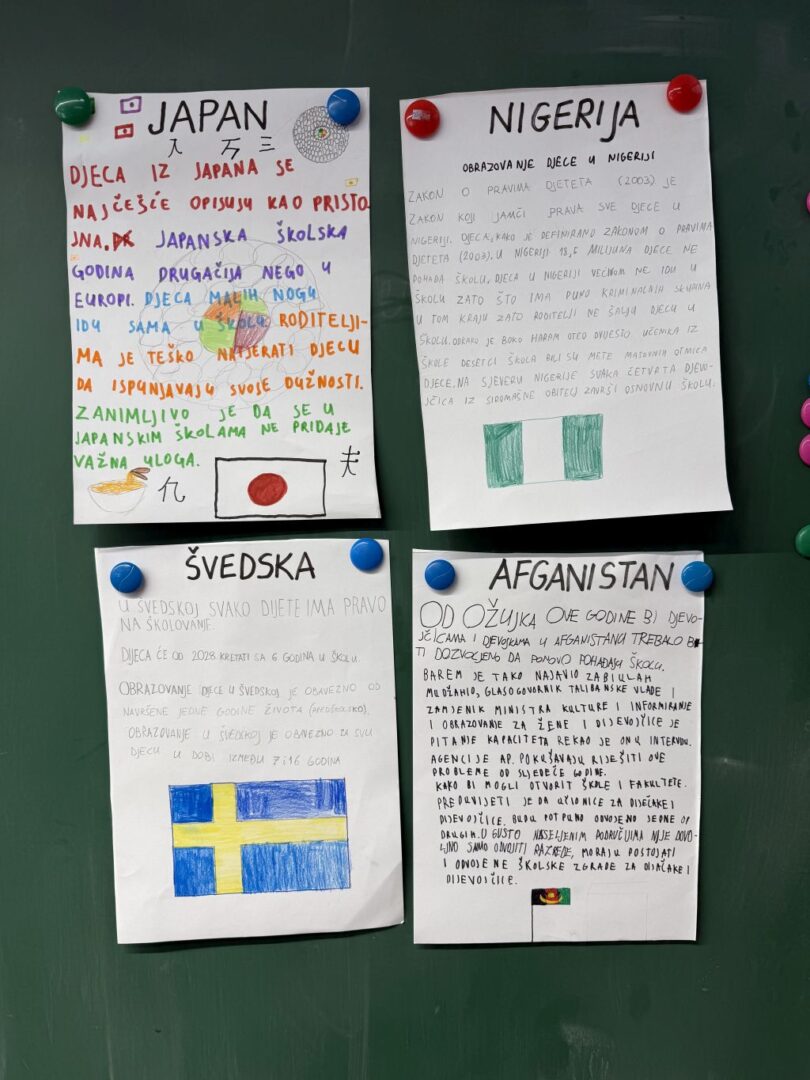 JAPAN
DJECA IZ JAPANA SE
NAJČEŠĆE OPISUJU KAO PRISTO
JNA. JAPANSKA ŠKOLSKA
GODINA DRUGAČIJA NEGO U
EUROPI. DJECA MALIH NOGU
IDU SAMA U ŠKOLU. RODITELJI-
MA JE TEŠKO NATJERATI DJECU
DA ISPUNJAVAJU SVOJE DUŽNOSTI.
ZANIMLJIVO JE DA SE U
JAPANSKIM ŠKOLAMA NE PRIDAJE
VAŽNA ULOGA.
NIGERIJA
OBRAZOVANJE DJECE U NIGERIJI
ZAKON O PRAVIMA DJETETA (2003) JE
ZAKON KOJI JAMČI PRAVA SVE DJECE U
NIGERIJI. DJECA, KAKO JE DEFINIRANO ZAKONOM O PRAVIMA
DJETETA (2003). U NIGERIJI 18,5 MILIJUNA DJECE NE
POHAĐA ŠKOLU, DJECA U NIGERIJI VEĆINOM NE IDU U
ŠKOLU ZATO ŠTO IMA PUNO KRIMINALNIH SKUPINA
U TOM KRAJU ZATO RODITELJI NE ŠALJU DJECU U
ŠKOLU. JE BOKO HARAM OTEO DVIJESTO UČENIKA IZ
ŠKOLE DESETCI ŠKOLA BILI SU METE MASOVNIH OTMICA
DJECE, NA SJEVERU NIGERIJE SVAKA ČETVRTA DJEVO-
JČICA IZ SIROMAŠNE OBITELJ ZAVRŠI OSNOVNU ŠKOLU.
ŠVEDSKA
U ŠVEDSKOJ SVAKO DIJETE IMA PRAVO
NA ŠKOLOVANJE.
DIJECA ĆE OD 2028 KRETATI SA 6 GODINA U ŠKOLU.
OBRAZOVANJE DJECE U ŠVEDSKOJ JE OBAVEZNO OD
NAVRŠENE JEDNE GODINE ŽIVOTA (PREDŠKOLSKO).
OBRAZOVANJE U ŠVEDSKOJ JE OBAVEZNO ZA SVU
DJECU U DOBI IZMEĐU 7 I 16 GODINA
AFGANISTAN
OD OŽUJKA OVE GODINE BI DJEVO-
JČICAMA I DJEVOJKAMA U AFGANISTANU TREBALO BI
TI DOZVOLJENO DA PONOVO POHAĐAJU ŠKOLU.
BAREM JE TAKO NAJAVIO ZABIULAH
MUDŽAHID, GLASOGOVORNIK TALIBANSKE VLADE I
ZAMJENIK MINISTRA KULTURE I INFORMIRANJE
I OBRAZOVANJE ZA ŽENE I DIJEVOJČICE JE
PITANJE KAPACITETA REKAO JE ON U INTERVJU.
AGENCIJE AP. POKUŠAVAJU RIJEŠITI OVE
PROBLEME OD SLJEDEĆE GODINE.
KAKO BI MOGLI OTVORIT ŠKOLE I FAKULTETE.
PREDUVIJETI JE DA UČIONICE ZA DIJEČAKE I
DIJEVOJČICE. BUDU POTPUNO ODVOJENO JEDNE OD
DRUGIH. U GUSTO NASELJENIM PODRUČJIMA NIJE DOVO-
LJNO SAMO ODVOJITI RAZREDE, MORAJU POSTOJATI
I ODVOJENE ŠKOLSKE ZGRADE ZA DIJAČAKE I
DIJEVOJČICE.